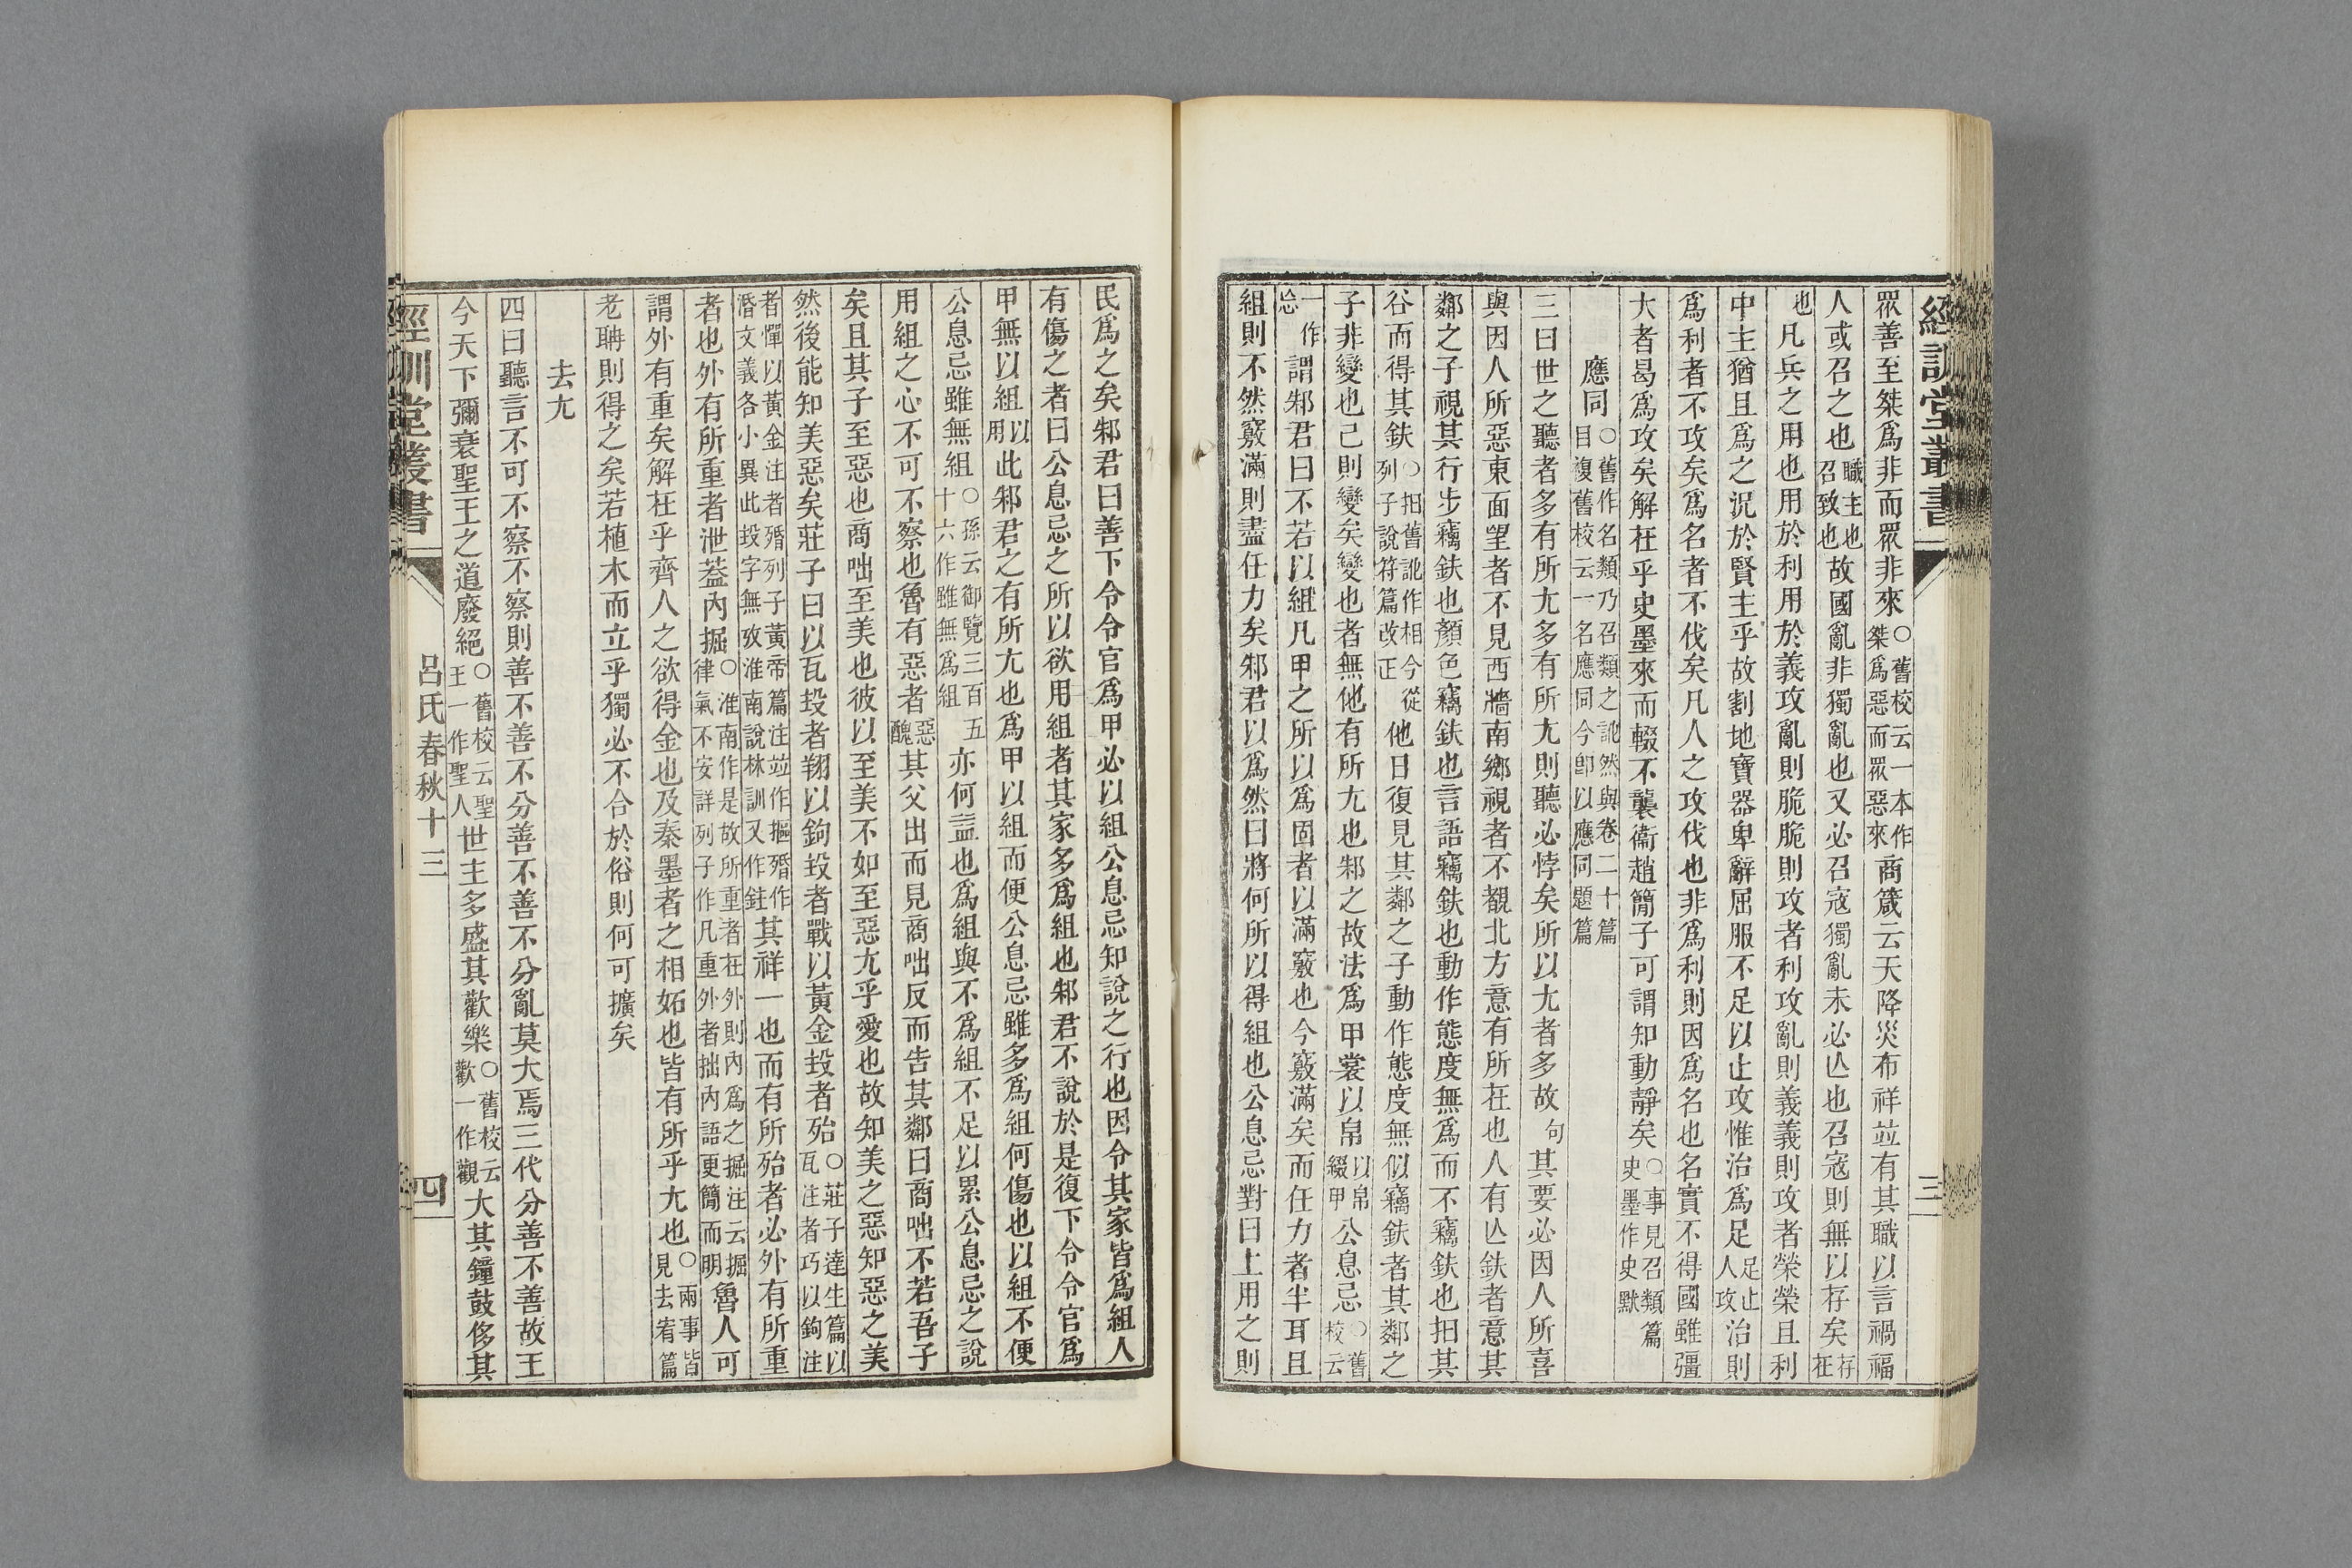 經訓堂叢書
三
眾善至桀爲非而眾非來○舊校云一本作桀爲惡而眾惡來商箴云天降災布祥竝有其職以言禍福
人或召之也職主也召致也故國亂非獨亂也又必召寇獨亂未必亾也召寇則無以存矣存在
也凡兵之用也用於利用於義攻亂則脆脆則攻者利攻亂則義義則攻者榮榮且利
中主猶且爲之況於賢主乎故割地寶器卑辭屈服不足以止攻惟治爲足足止人攻治則
爲利者不攻矣爲名者不伐矣凡人之攻伐也非爲利則因爲名也名實不得國雖彊
大者曷爲攻矣解在乎史墨來而輟不襲衞趙簡子可謂知動靜矣○事見召類篇史墨作史默
應同○舊作名類乃召類之訛然與卷二十篇目複舊校云一名應同今卽以應同題篇
三曰世之聽者多有所尤多有所尤則聽必悖矣所以尤者多故句其要必因人所喜
與因人所惡東面望者不見西牆南鄉視者不覩北方意有所在也人有亾鈇者意其
鄰之子視其行步竊鈇也顏色竊鈇也言語竊鈇也動作態度無爲而不竊鈇也抇其
谷而得其鈇○抇舊訛作相今從列子說符篇改正他日復見其鄰之子動作態度無似竊鈇者其鄰之
子非變也己則變矣變也者無他有所尤也邾之故法爲甲裳以帛以帛綴甲公息忌○舊校云
一作忘謂邾君曰不若以組凡甲之所以爲固者以滿竅也今竅滿矣而任力者半耳且
組則不然竅滿則盡任力矣邾君以爲然曰將何所以得組也公息忌對曰上用之則
民爲之矣邾君曰善下令令官爲甲必以組公息忌知說之行也因令其家皆爲組人
有傷之者曰公息忌之所以欲用組者其家多爲組也邾君不說於是復下令令官爲
甲無以組以用此邾君之有所尤也爲甲以組而便公息忌雖多爲組何傷也以組不便
公息忌雖無組○孫云御覽三百五十六作雖無爲組亦何益也爲組與不爲組不足以累公息忌之說
用組之心不可不察也魯有惡者惡醜其父出而見商咄反而告其鄰曰商咄不若吾子
矣且其子至惡也商咄至美也彼以至美不如至惡尤乎愛也故知美之惡知惡之美
然後能知美惡矣莊子曰以瓦投者翔以鉤投者戰以黃金投者殆○莊子達生篇以瓦注者巧以鉤注
者憚以黃金注者殙列子黃帝篇注竝作摳殙作湣文義各小異此投字無攷淮南說林訓又作鉒其祥一也而有所殆者必外有所重
者也外有所重者泄蓋內掘○淮南作是故所重者在外則內爲之掘注云掘律氣不安詳列子作凡重外者拙內語更簡而明魯人可
謂外有重矣解在乎齊人之欲得金也及秦墨者之相妬也皆有所乎尤也○兩事皆見去宥篇
老聃則得之矣若植木而立乎獨必不合於俗則何可擴矣
去尤
四曰聽言不可不察不察則善不善不分善不善不分亂莫大焉三代分善不善故王
今天下彌衰聖王之道廢絕○舊校云聖王一作聖人世主多盛其歡樂○舊校云歡一作觀大其鐘鼓侈其
經訓堂叢書
呂氏春秋十三
四